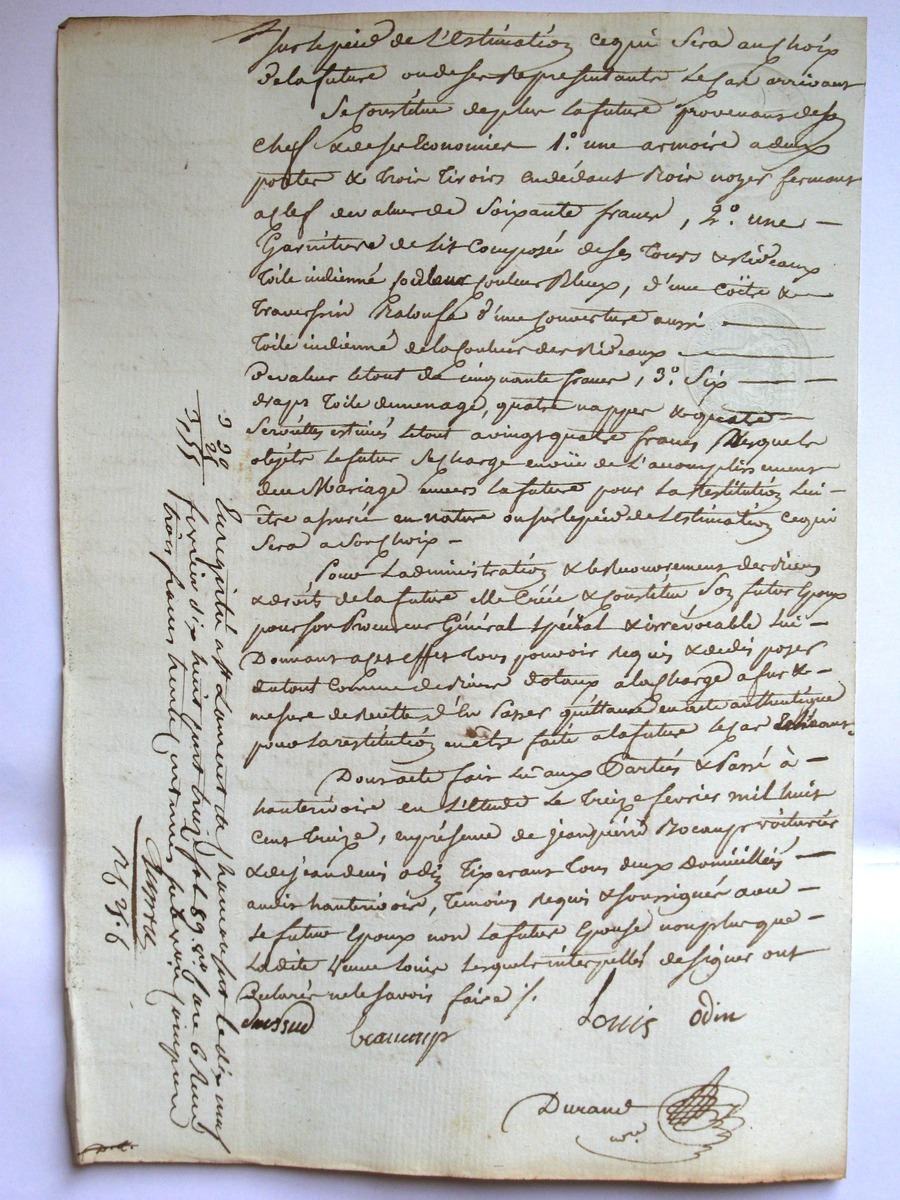 sur le pied de L'Estimation ce qui Sera au Choix
de la future ou de ses Représentants Le Cas arrivant
Se Constitue de plus La future provenant de son
Chef & de ses Economies 1.º une armoire a deux
portes & trois Tiroirs en dédant Bois noyer fermant
a Clef de valeur de Soixante francs, 2.º une
Garniture de Lit Composée de ses Tours & Rideaux
Toile indienné Couleur Bleux, d'une Coëtre &
Traversin Baloufe d'une Couverture aussi
Toile indienné de la Couleur des Rideaux
De valeur le tout de Cinquante francs, 3.º Six
draps Toile de menage, quatre nappes & quatre
Serviettes estimés Le tout a vingt quatre francs, desquels
objéts Le futur Se charge en vüe de L'accomplissement
du Mariage envers La future pour La Restitution Lui
être assurée en nature ou sur Le pied de L'Estimation ce qui
Sera a Son Choix
Pour L'administration & Le Recouvrement des Biens
& droits de La future elle Créé & Constitue Son futur Epoux
pour Son Procureur Général Spécial & irrévocable Lui
Donnant a Ces effets tous pouvoir Requis & de disposer
du tout Comme de Biens dotaux a la Charge a fur &
mesure de Recette d'En Passer quittance en acte authentique
pour La restitution en etre faite a la future Le Cas
Dont acte fait Lû aux Parties & Passé à
hauterivoire en L'Etude Le Treize février mil huit
Cent Treize, en présence de Jean pierre Bocamp voiturier
& de jean denis odin Tixerant Tous deux Domiciliés
audit hauterivoire, Temoins Requis & Soussignés avec
Le futur Epoux non La future Epouse non plus que
La dite Veuve Louis Lesquels interpellés de signer ont
Déclarés ne le Savoir faire ./.
Louis odin
Durand
nre
Enregistré a St Laurent de Chamousset le dix neuf
fevrier dix huit Cent treize fol 89. Rº Case 6 Reçu
trois francs trente centimes Subvention Comprise